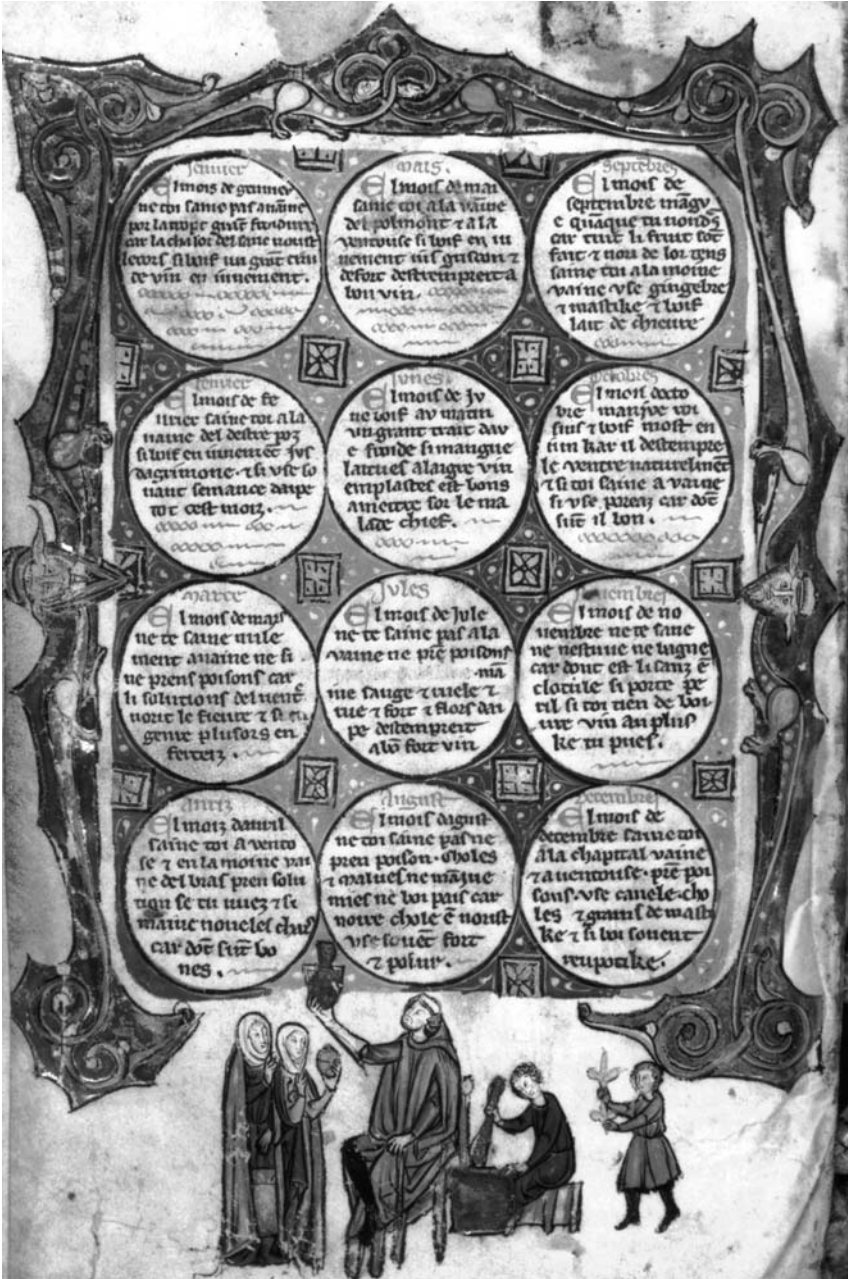 Jenvier
El mois de genvier
ne toi sanie pas a vaine
car la chalor del sanc norist
le cors si boif un grant
de vin en iunement.
Fevrier
El mois de fe
vrier saine toi a la
vaine del destre poz
si boif en iunement jus
dagrimone · & si use so
vant semance dape
tot cest moiz.
Marce
El mois de mars
ne te saine nule
ment a vaine ne si
ne prens poisons car
li solutions del ventre
& si en
genre plusors en
fertez.
Avriz
El moiz davril
saine toi a vento
se & en la moine vai
ne del bras pren solu
tion se tu & si
maniue noveles chars
car dont sunt bo
nes.
Mais
El mois de mai
saine toi a la vaine
del polmont & a la
ventouse si boif en iu
nement &
de fort destempreit a
bon vin.
Junes
El mois de Ju
ne boif au matin
un grant trait dav
e froide si mangue
laitues a laigre vin
emplastes est bons
a metre sor le ma
lade chief.
Jules
El mois de Jule
ne te saine pas a la
vaine ne pren poisons
man
iue sauge &
rue & fort & flors da
pe destempreit
a bon fort vin
August
El mois dagust
ne toi saine pas ne
pren poison · choles
& malves ne maniue
mies ne boi pais car
noire chole e norist
use sovent fort
& poliur.
Septebres
El mois de
septembre mangu
e quanque tu
car tuit li fruit sont
fait & de lor tens
saine toi a la moine
vaine use gingebre
& mastike & boif
lait de chievre
Octobres
El mois docto
bre manjue roi
sins & boif most en
kar il destempre
le ventre naturelment
& si toi saine a vaine
si use porean car dont
sunt il bon.
Novembres
El mois de no
vembre ne te sane
ne ne baigne
car dont est li sanz en
si toi tien de boi
vre vin au plus
ke tu pues.
Decembres
El mois de
decembre saine toi
a la chapital vaine
& a ventouse · pren poi
sons · use canele · cho
les & grains de masti
ke & si boi sovent
rupotike.